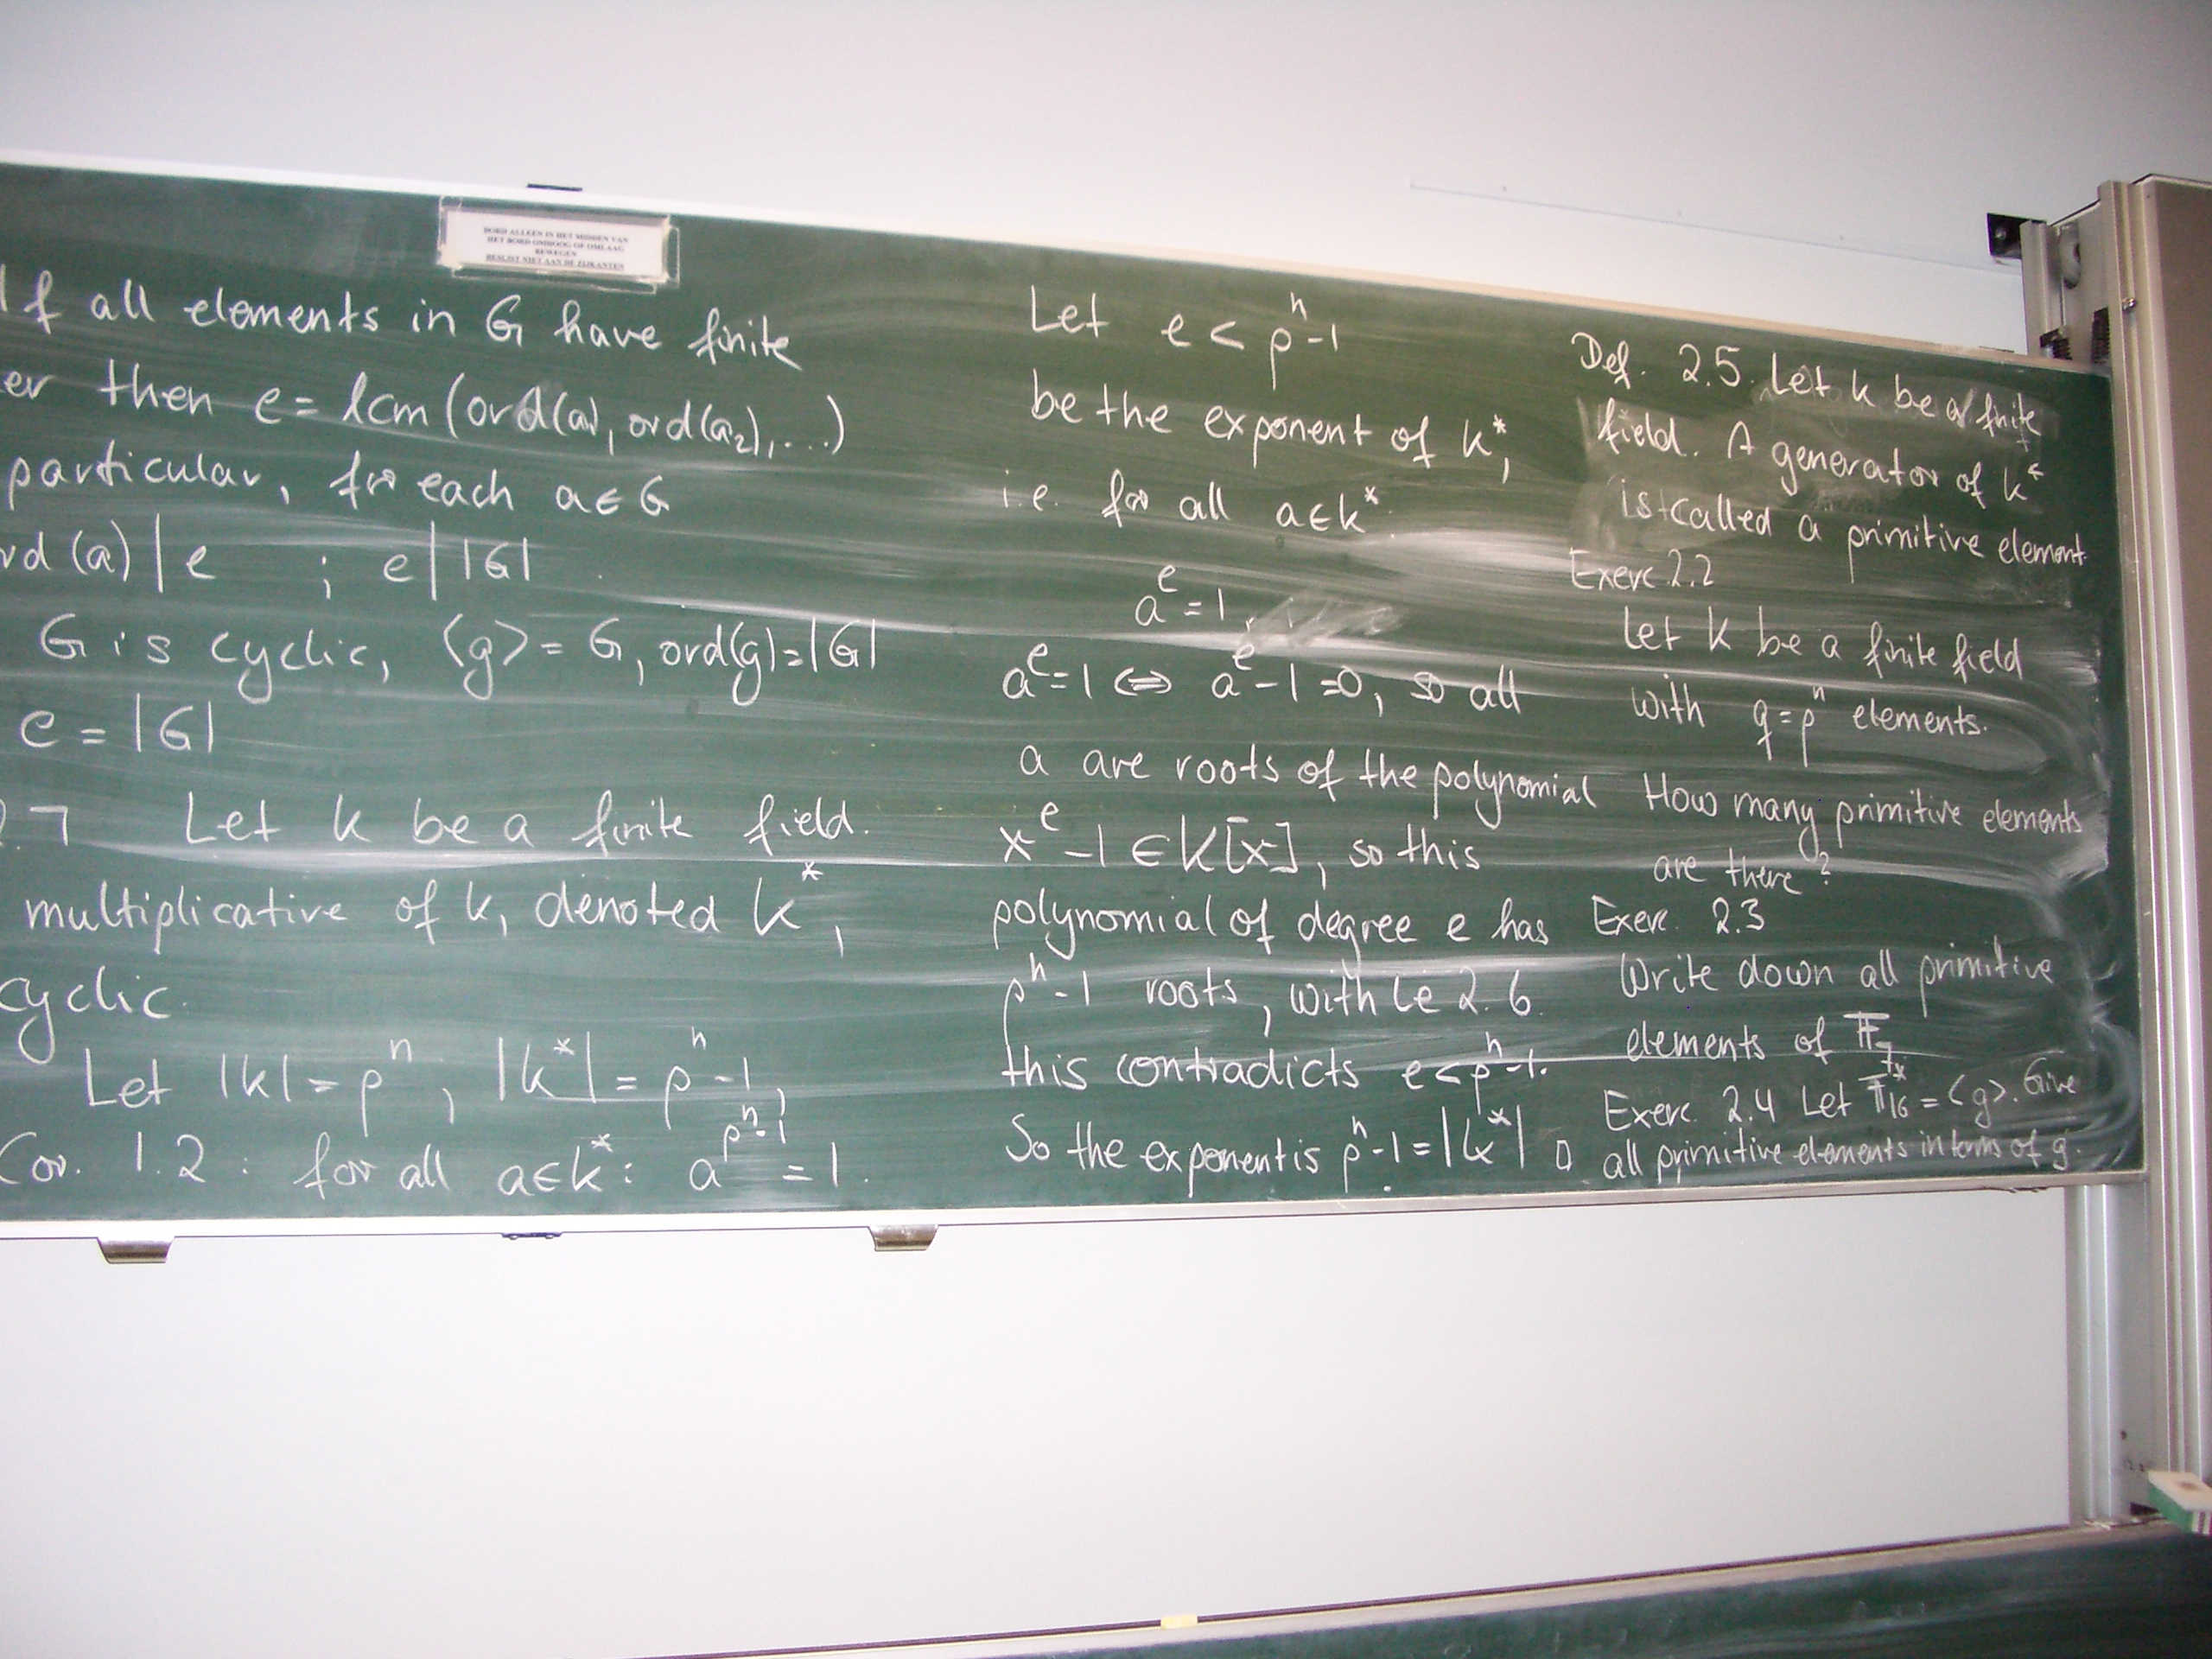 BORD ALLEEN IN HET MIDDEN VAN
HET BORD OMHOOG OF OMLAAG
BEWEGEN
BESLIST NIET AAN DE ZIJKANTEN
If all elements in G have finite
er then e = lcm(ord(a), ord(a₂), ...)
particular, for each a ∈ G
rd (a) | e ; e | |G|
G is cyclic, ⟨g⟩ = G, ord(g) = |G|
e = |G|
2.7 Let k be a finite field.
multiplicative of k, denoted k*,
cyclic.
Let |k| = pⁿ, |k*| = pⁿ-1,
Cor. 1.2 : for all a ∈ k* : a^(pⁿ-1) = 1.
Let e < pⁿ-1
be the exponent of k*,
i.e. for all a ∈ k*
aᵉ = 1,
aᵉ = 1 ⇔ aᵉ - 1 = 0, so all
a are roots of the polynomial
xᵉ - 1 ∈ k[x], so this
polynomial of degree e has
pⁿ-1 roots, with Le 2.6
this contradicts e < pⁿ-1.
So the exponent is pⁿ-1 = |k*| □
Def. 2.5. Let k be a finite
field. A generator of k*
is called a primitive element.
Exerc 2.2
Let k be a finite field
with q = pⁿ elements.
How many primitive elements
are there?
Exerc. 2.3
Write down all primitive
elements of 𝔽₇.
Exerc. 2.4 Let 𝔽₁₆* = ⟨g⟩. Give
all primitive elements in terms of g.